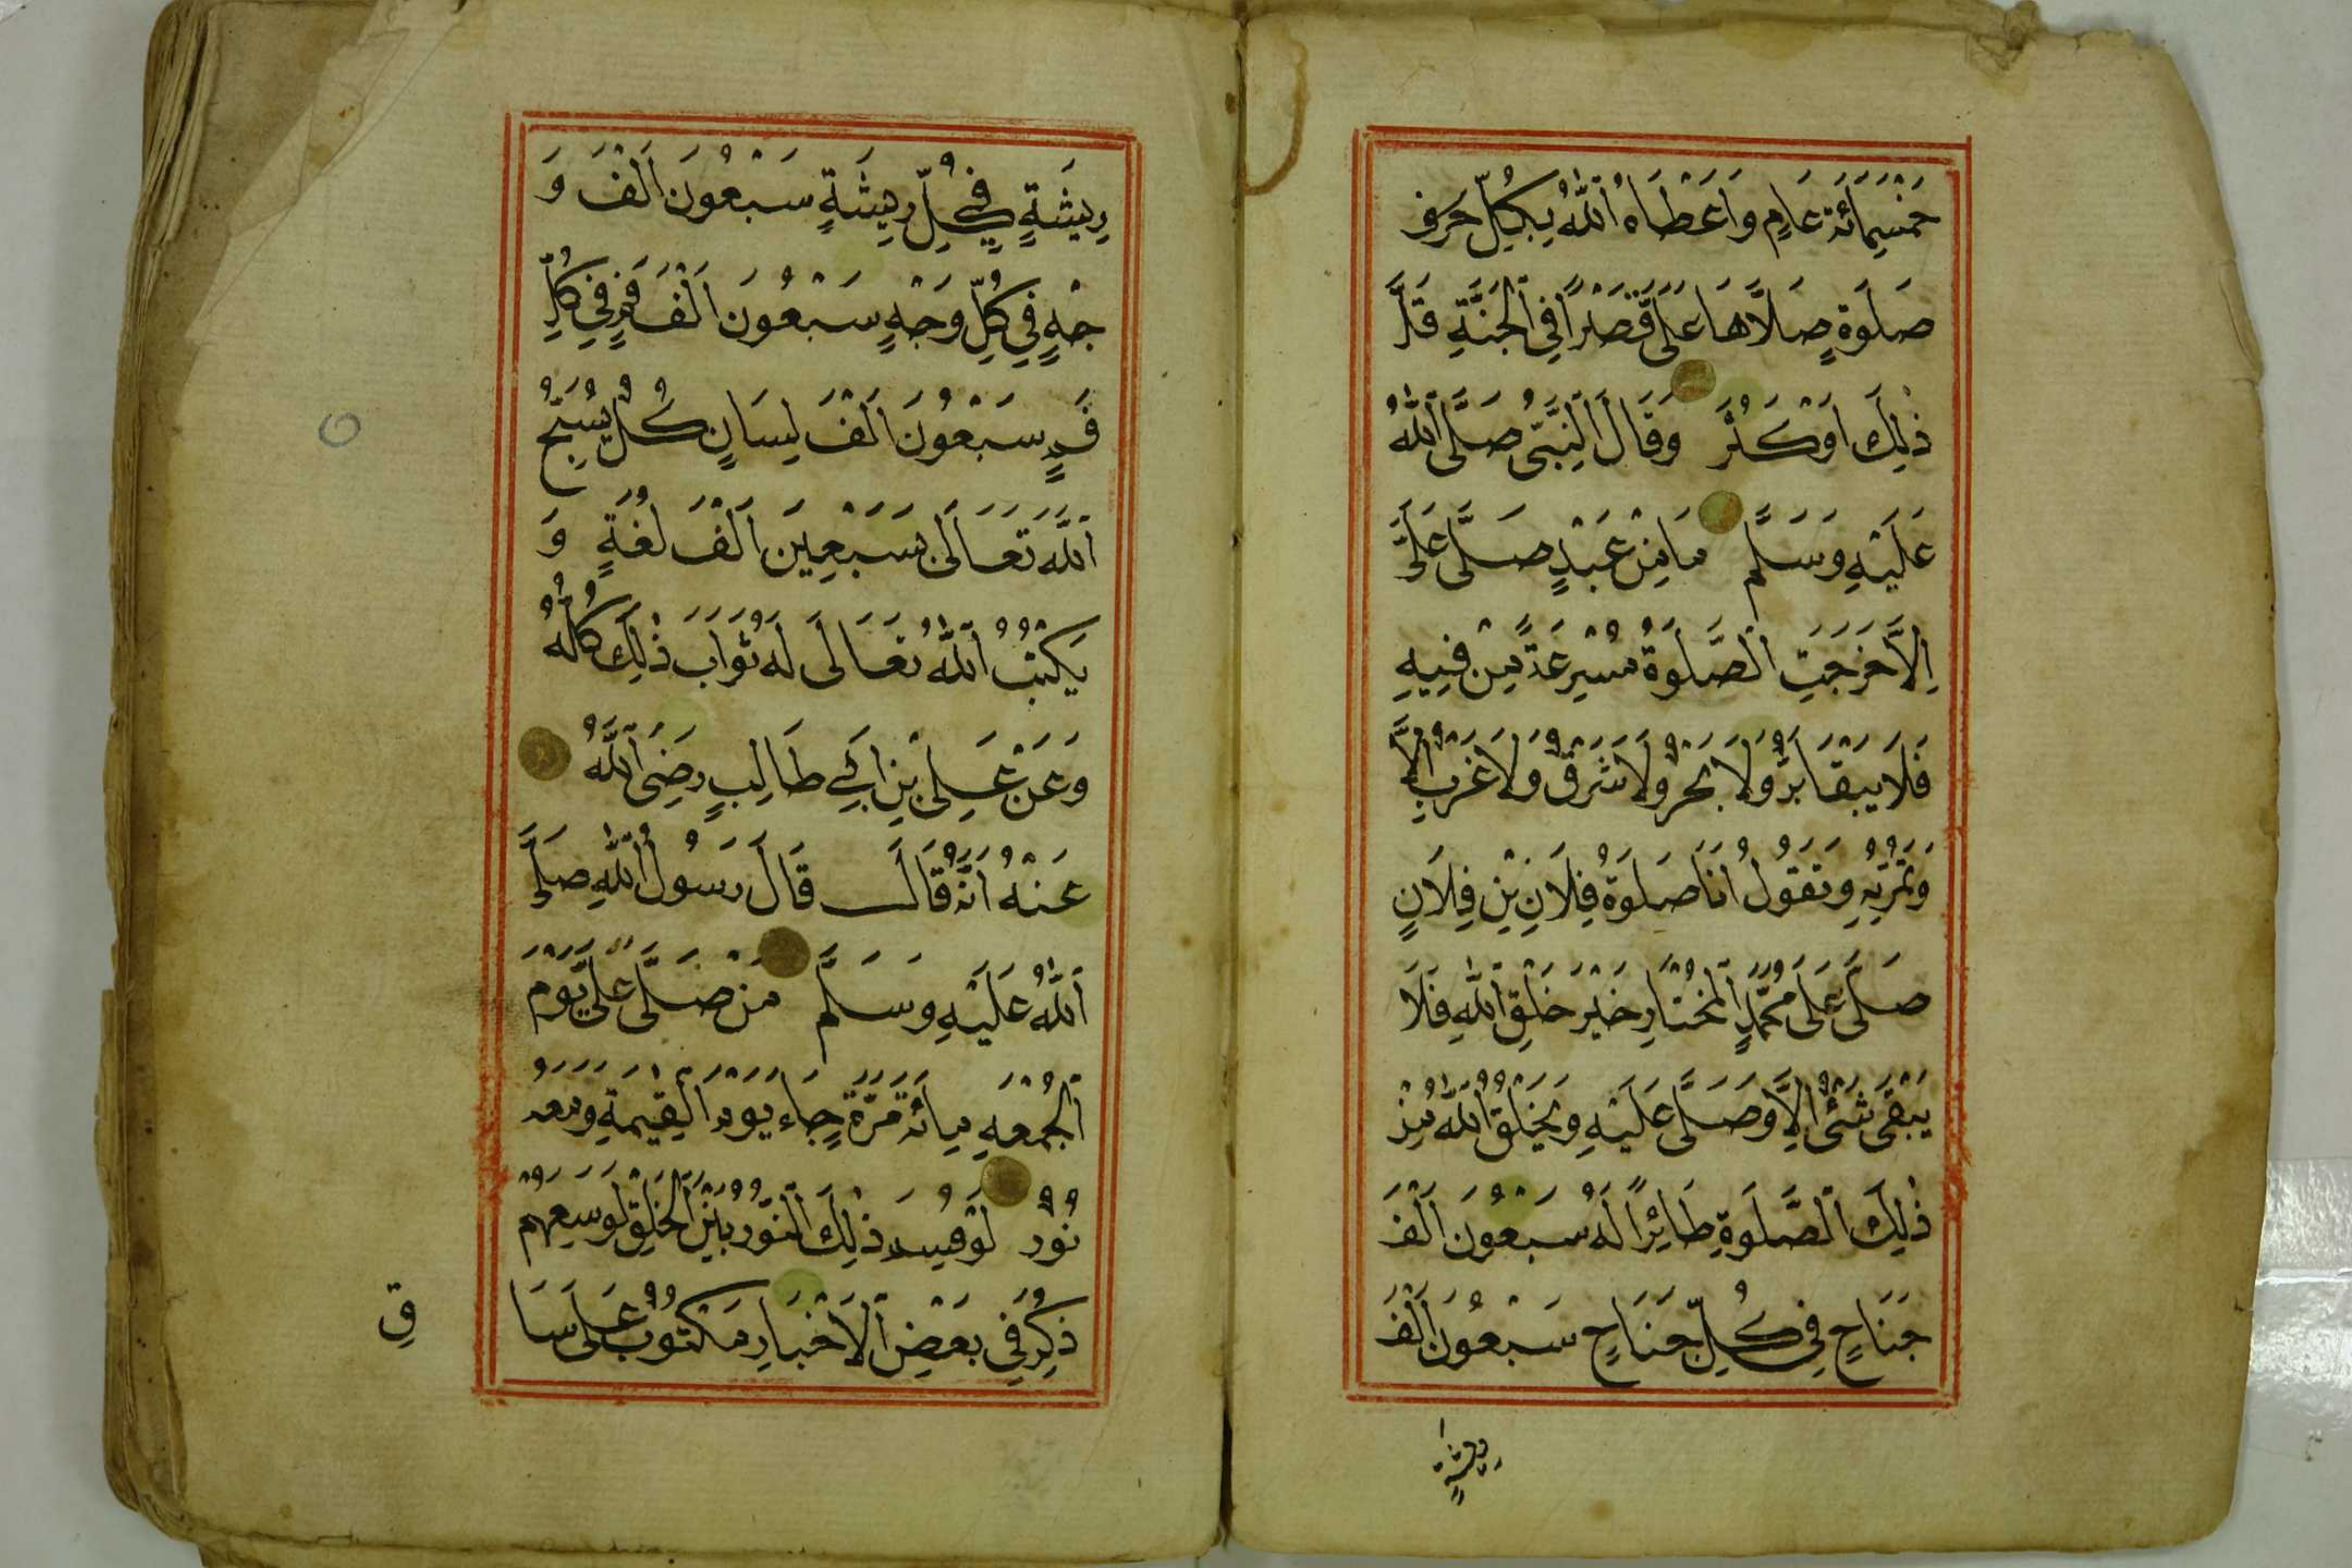 خَمْسِمَائَةِ عَامٍ وَاَعْطَاهُ اللّٰهُ بِكُلِّ حَرْفِ
صَلَوةٍ صَلَّاهَا عَلَىَّ قَصْرًا فِي الْجَنَّةِ قَلَّ
ذٰلِكَ اَوْ كَثُرَ وَقَالَ النَّبِيُّ صَلَّى اللّٰهُ
عَلَيْهِ وَسَلَّمَ مَا مِنْ عَبْدٍ صَلَّى عَلَيَّ
اِلَّا خَرَجَتِ الصَّلَوةُ مُسْرِعَةً مِنْ فِيهِ
فَلَا يَبْقَا بَرٌّ وَلَا بَحْرٌ وَلَا شَرْقٌ وَلَا غَرْبٌ اِلَّا
وَتَمُرُّ بِهِ وَتَقُولُ اَنَا صَلَوةُ فِلَانِ بْنِ فِلَانٍ
صَلَّى عَلَى مُحَمَّدٍ الْمُخْتَارِ خَيْرِ خَلْقِ اللّٰهِ فَلَا
يَبْقَى شَيْءٌ اِلَّا وَصَلَّى عَلَيْهِ وَيَخْلُقُ اللّٰهُ مِنْ
ذٰلِكَ الصَّلَوةِ طَائِرًا لَهُ سَبْعُونَ اَلْفَ
جَنَاحٍ فِي كُلِّ جَنَاحٍ سَبْعُونَ اَلْفَ
رِيشَةٍ
رِيشَةٍ فِي كُلِّ رِيشَةٍ سَبْعُونَ اَلْفَ وَ
جْهٍ فِي كُلِّ وَجْهٍ سَبْعُونَ اَلْفَ فَمٍ فِي كُلِّ
فَمٍ سَبْعُونَ اَلْفَ لِسَانٍ كُلُّ يُسَبِّحُ
اللّٰهَ تَعَالَى بِسَبْعِينَ اَلْفَ لُغَةٍ وَ
يَكْتُبُ اللّٰهُ تَعَالَى لَهُ ثَوَابَ ذٰلِكَ كُلَّهُ
وَعَنْ عَلِي بْنِ اَبِي طَالِبٍ رَضِيَ اللّٰهُ
عَنْهُ اَنَّهُ قَالَ قَالَ رَسُولُ اللّٰهِ صَلَّى
اللّٰهُ عَلَيْهِ وَسَلَّمَ مَنْ صَلَّى عَلَيَّ يَوْمَ
الْجُمْعَةِ مِائَةَ مَرَّةٍ جَاءَ يَوْمَ الْقِيٰمَةِ وَمَعَهُ
نُورٌ لَوْ قُسِمَ ذٰلِكَ النُّورُ بَيْنَ الْخَلْقِ لَوَسِعَهُمْ
ذُكِرَ فِي بَعْضِ الْاَخْبَارِ مَكْتُوبٌ عَلَى سَا
قِ